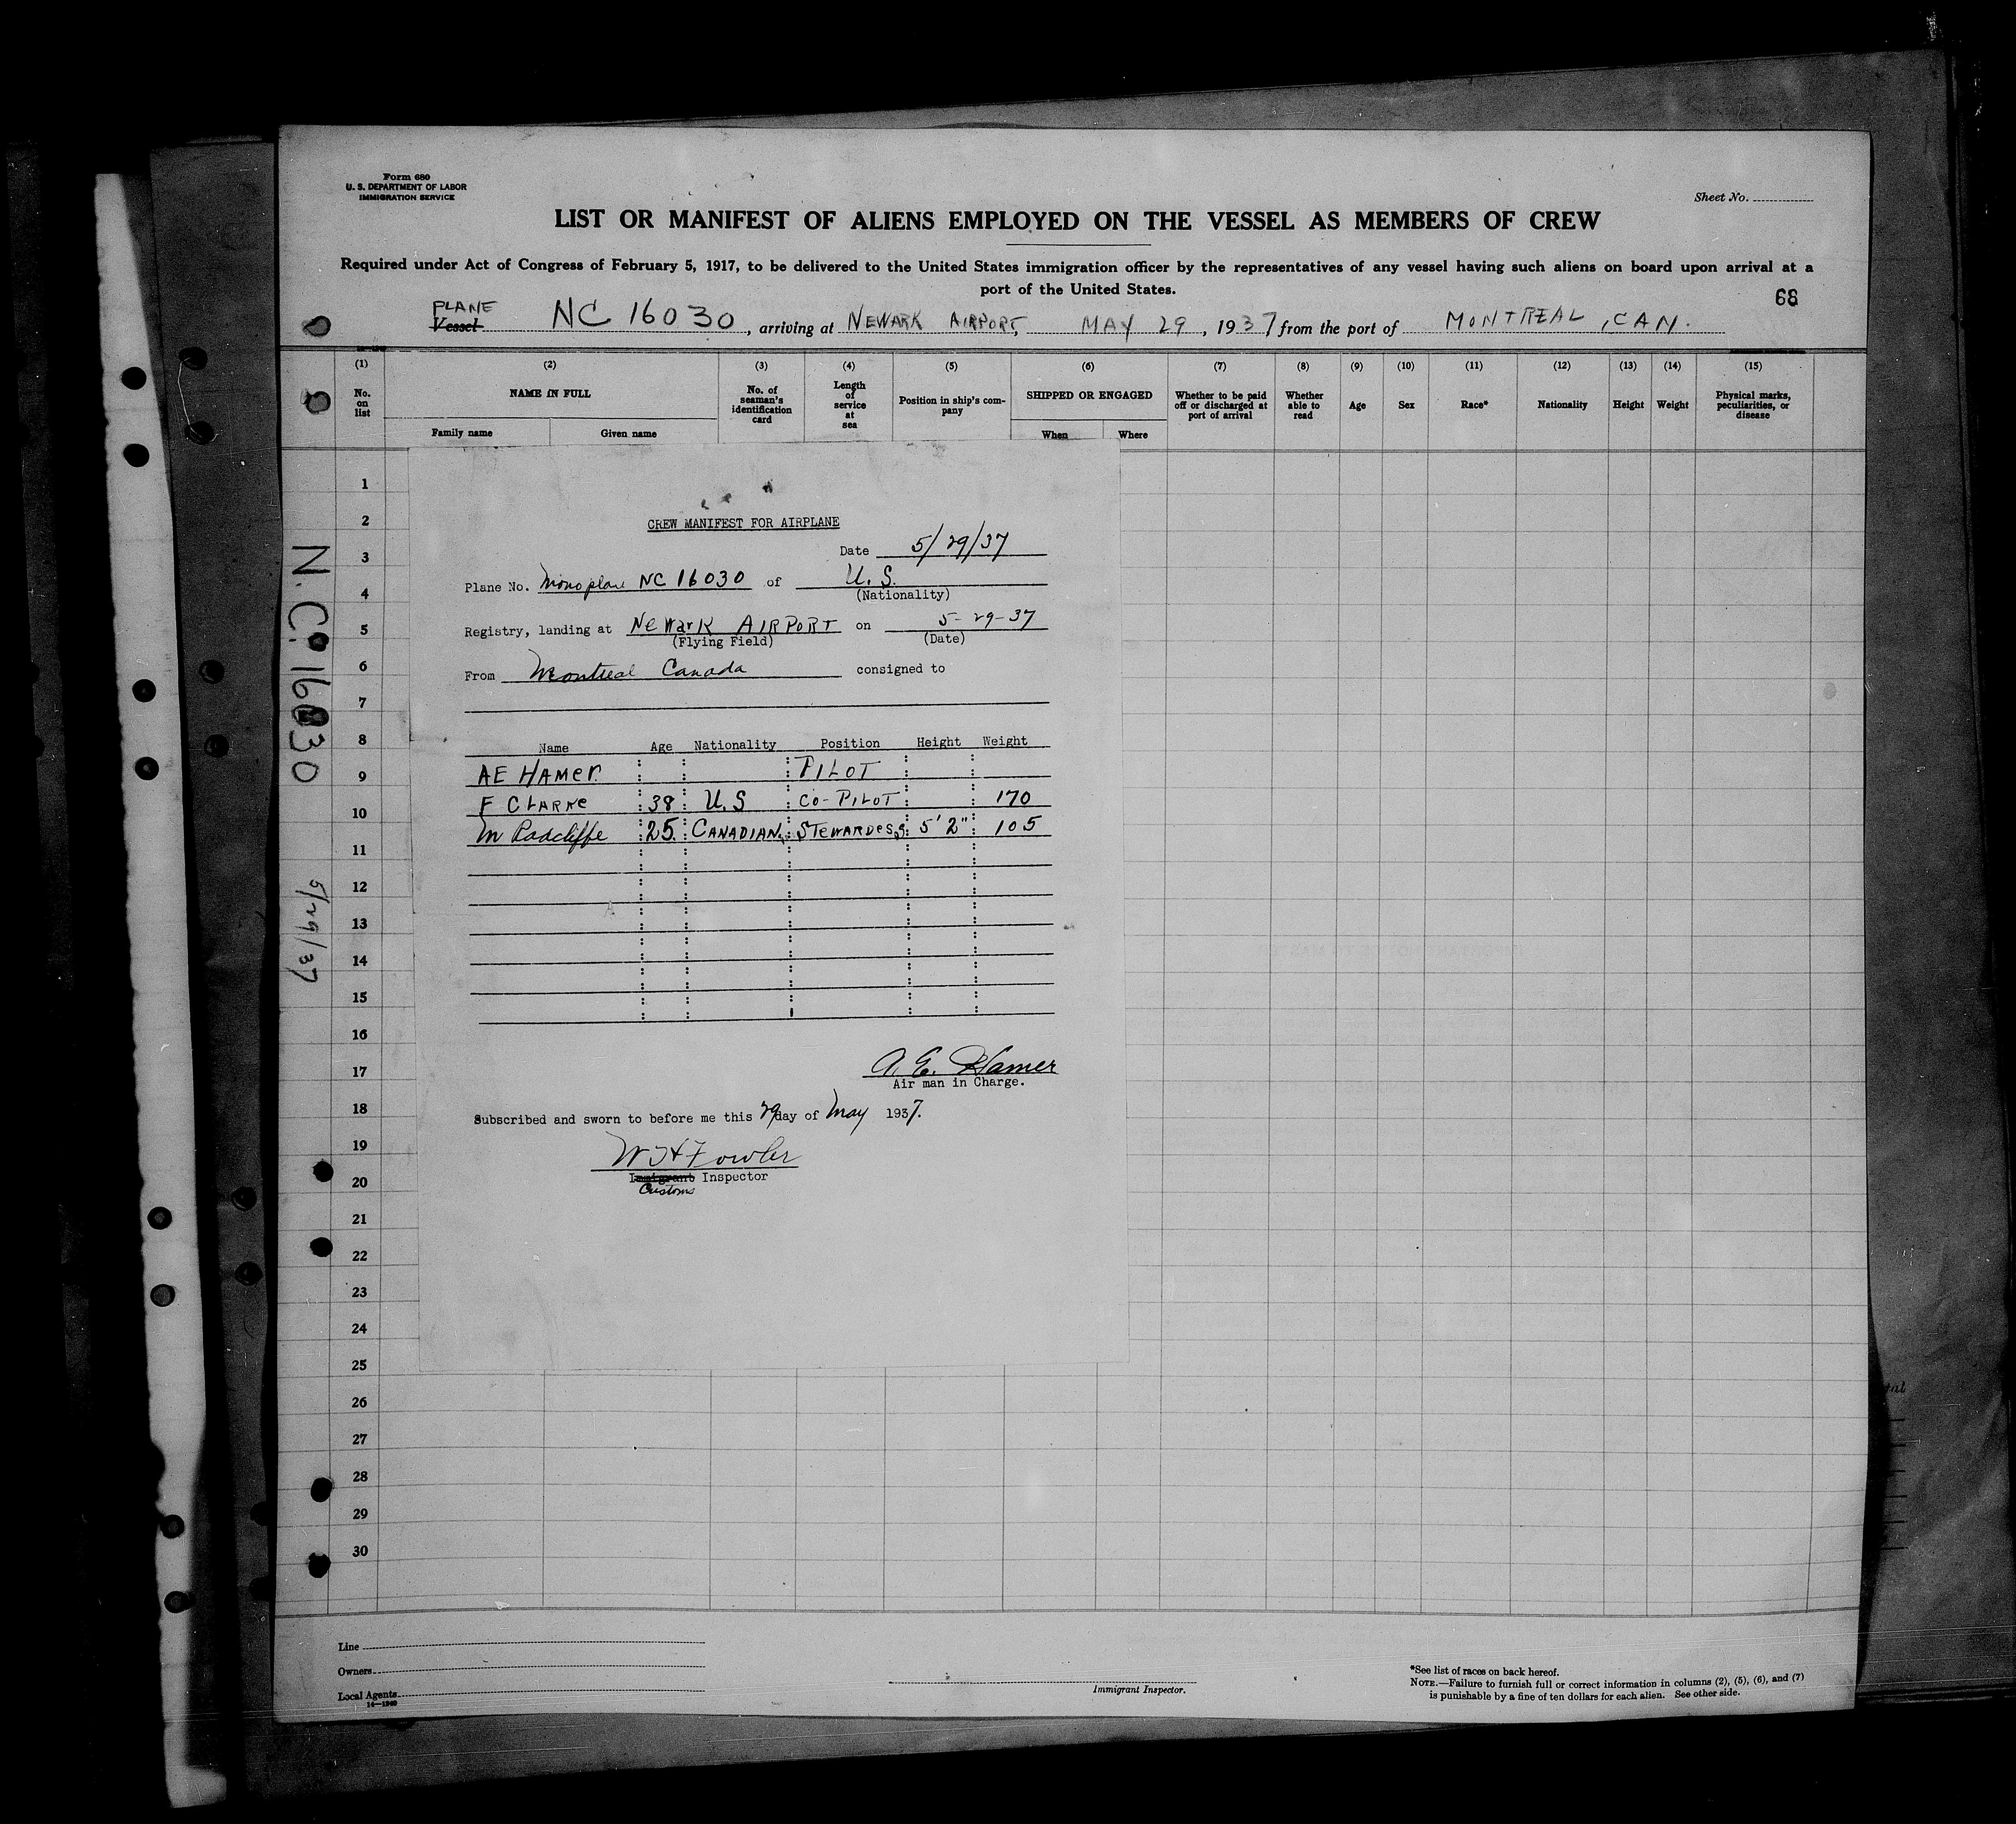 Form 680
U. S. DEPARTMENT OF LABOR
IMMIGRATION SERVICE
Sheet No.
LIST OR MANIFEST OF ALIENS EMPLOYED ON THE VESSEL AS MEMBERS OF CREW
Required under Act of Congress of February 5, 1917, to be delivered to the United States immigration officer by the representatives of any vessel having such aliens on board upon arrival at a
port of the United States.
68
PLANE
Vessel NC 16030, arriving at NEWARK AIRPORT, MAY 29, 1937 from the port of MONTREAL, CAN.
(1) (2) (3) (4) (5) (6) (7) (8) (9) (10) (11) (12) (13) (14) (15)
No. on list
NAME IN FULL
Family name
Given name
No. of seaman's identification card
Length of service at sea
Position in ship's company
SHIPPED OR ENGAGED
When
Where
Whether to be paid off or discharged at port of arrival
Whether able to read
Age
Sex
Race*
Nationality
Height
Weight
Physical marks, peculiarities, or disease
N.C. 16030 5/29/37
1
2
3
4
5
6
7
8
9
10
11
12
13
14
15
16
17
18
19
20
21
22
23
24
25
26
27
28
29
30
CREW MANIFEST FOR AIRPLANE
Date 5/29/37
Plane No. Monoplane NC 16030 of U.S.
(Nationality)
Registry, landing at Newark AIRPORT on 5-29-37
(Flying Field) (Date)
From Montreal Canada consigned to
Name Age Nationality Position Height Weight
AE HAMER PILOT
F CLARKE 38 U.S CO-PILOT 170
M Radcliffe 25 CANADIAN STEWARDESS 5'2" 105
A. E. Hamer
Air man in Charge.
Subscribed and sworn to before me this 29 day of May 1937.
W H Fowler
Immigrant Inspector
Customs
Line
Owners
Local Agents
14—1240
Immigrant Inspector.
*See list of races on back hereof.
NOTE.—Failure to furnish full or correct information in columns (2), (5), (6), and (7)
is punishable by a fine of ten dollars for each alien. See other side.